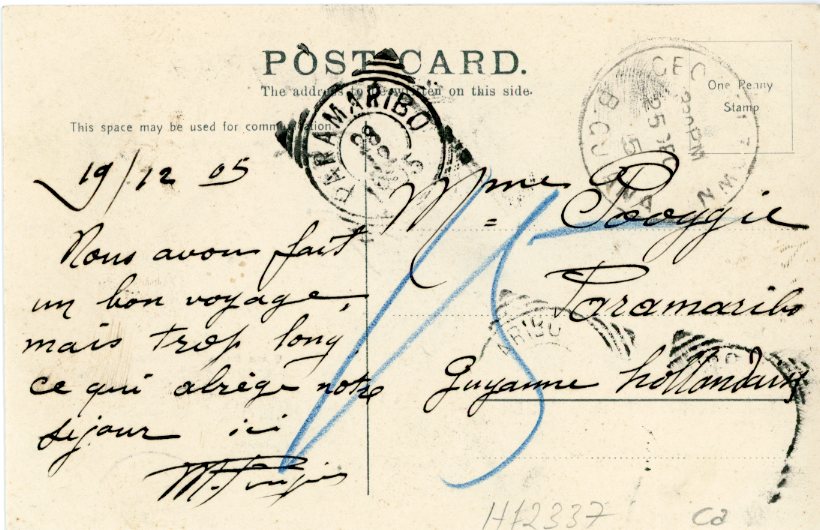 POST CARD.
The address to be written on this side.
This space may be used for communication.
One Penny
Stamp
PARAMARIBO
B. GUIANA
19/12 05
Nous avons fait
un bon voyage,
mais trop long
ce qui abrège notre
séjour ici
Mme Pooggie
Paramaribo
Guyanne hollandaise
15
ARIBO
H12337
Ca